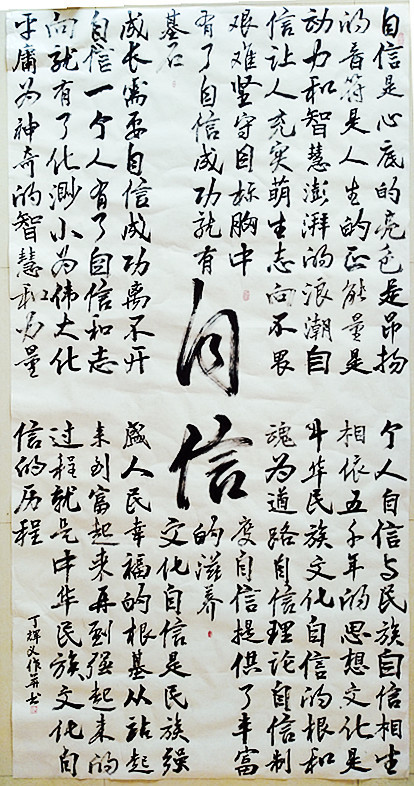 自信是心底的亮色是昂扬
的音符是人生的正能量是
动力和智慧澎湃的浪潮自
信让人充实萌生志向不畏
艰难坚守目标胸中
有了自信成功就有
基石
成长需要自信成功离不开
自信一个人有了自信和志
向就有了化渺小为伟大化
平庸为神奇的智慧和力量
自信
个人自信与民族自信相生
相依五千年的思想文化是
中华民族文化自信的根和
魂为道路自信理论自信制
度自信提供了丰富
的滋养
文化自信是民族强
盛人民幸福的根基从站起
来到富起来再到强起来的
过程就是中华民族文化自
信的历程
丁辉义作并书